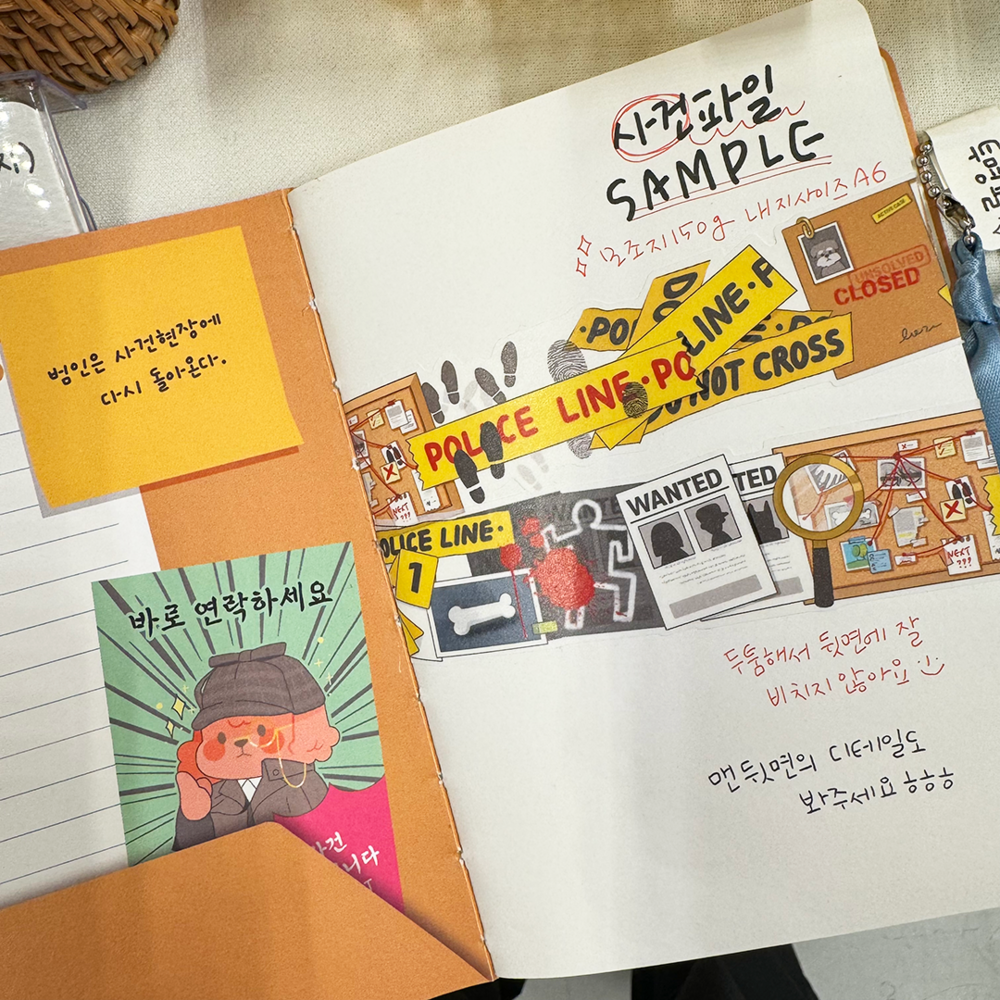 범인은 사건현장에
다시 돌아온다.
바로 연락하세요
사건파일
SAMPLE
모조지150g 내지사이즈A6
UNSOLVED
CLOSED
POLICE LINE·PO
LINE·P
NOT CROSS
POLICE LINE·
1
WANTED
NEXT
???
NEXT
???
두툼해서 뒷면에 잘
비치지 않아요 :)
맨 뒷면의 디테일도
봐주세요 ㅎㅎㅎ